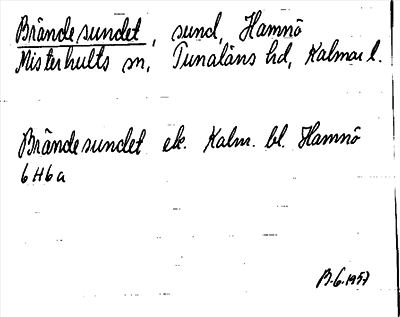 Brändesundet, sund, Hamnö
Misterhults sn, Tunaläns hd, Kalmar l.
Brändesundet ek. Kalm. bl. Hamnö
6H6a
B.G. 1957